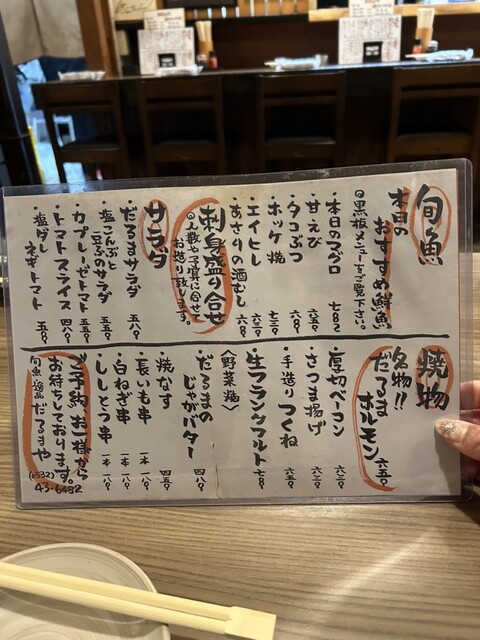 旬魚
本日のおすすめ鮮魚
◎黒板メニューをご覧下さい。
・本日のマグロ 七八〇
・甘えび 六五〇
・タコぶつ 六八〇
・ホッケ焼 七三〇
・エイヒレ 六三〇
・あさりの酒むし 六八〇
刺身盛り合せ
◎人数や予算に合せて
お造り致します。
サラダ
・だるまサラダ 五八〇
・塩こんぶと
豆ふのサラダ 五五〇
・カプレーゼトマト 五五〇
・トマトスライス 四八〇
・塩ダレ
ネギトマト 五五〇
焼物
名物!!
だるま
ホルモン 六五〇
・厚切ベーコン 六三〇
・さつま揚げ 六三〇
・手造りつくね 六五〇
・生フランクフルト 七八〇
〈野菜焼〉
・だるまの
じゃがバター 四八〇
・焼なす 四五〇
・長いも串 一本一八〇
・白ねぎ串 一本一八〇
・ししとう串 一本一八〇
ご予約、お一様から
お待ちしております。
旬魚・逸品 だるまや
(0532)
43-6482